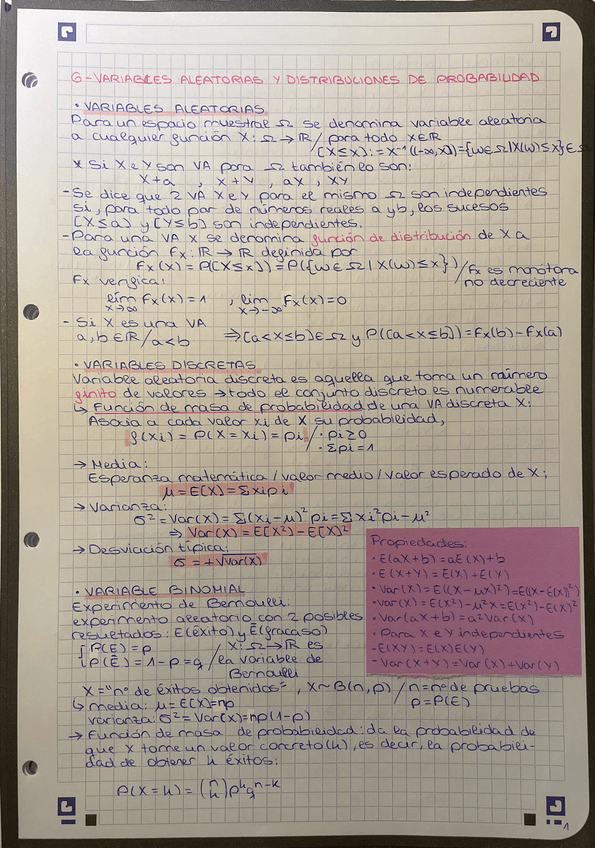 6-VARIABLES ALEATORIAS Y DISTRIBUCIONES DE PROBABILIDAD
· VARIABLES ALEATORIAS
Para un espacio muestral Ω se denomina variable aleatoria
a cualquier función X: Ω → ℝ / para todo x∈ℝ
[X≤x] := X⁻¹((-∞,x]) = {ω∈Ω | X(ω)≤x} ∈ S
* Si X e Y son VA para Ω también lo son:
X+a , X+Y , aX , XY
- Se dice que 2 VA X e Y para el mismo Ω son independientes
si, para todo par de números reales a y b, los sucesos
[X≤a] y [Y≤b] son independientes.
- Para una VA X se denomina función de distribución de X a
la función Fx: ℝ → ℝ definida por
Fx(x) = P([X≤x]) = P({ω∈Ω | X(ω)≤x}) / Fx es monótona
no decreciente
Fx verifica:
lím Fx(x) = 1 , lim Fx(x) = 0
x→∞ x→-∞
- Si X es una VA
a,b∈ℝ / a<b ⇒ [a<X≤b]∈Ω y P([a<X≤b]) = Fx(b) - Fx(a)
· VARIABLES DISCRETAS
Variable aleatoria discreta es aquella que toma un número
finito de valores → todo el conjunto discreto es numerable
↳ Función de masa de probabilidad de una VA discreta X:
Asocia a cada valor xi de X su probabilidad,
f(xi) = P(X=xi) = pi / · pi≥0
· Σpi=1
→ Media:
Esperanza matemática / valor medio / valor esperado de X:
μ = E(X) = Σxipi
→ Varianza:
σ² = Var(X) = Σ(xi-μ)²pi = Σxi²pi-μ²
⇒ Var(X) = E(X²) - E(X)²
→ Desviación típica:
σ = +√Var(X)
Propiedades:
· E(aX+b) = aE(X)+b
· E(X+Y) = E(X)+E(Y)
· Var(X) = E((X-μx)²) = E((X-E(X))²)
· Var(X) = E(X²)-μ²x = E(X²)-E(X)²
· Var(aX+b) = a²Var(X)
· Para X e Y independientes
- E(XY) = E(X)E(Y)
- Var(X+Y) = Var(X)+Var(Y)
· VARIABLE BINOMIAL
Experimento de Bernoulli:
experimento aleatorio con 2 posibles
resultados: E(éxito) y Ē(fracaso)
{P(E) = p / X: Ω → ℝ es
P(Ē) = 1-p = q / la variable de
Bernoulli
X = "nº de éxitos obtenidos", X~B(n,p) / n = nº de pruebas
p = P(E)
↳ media: μ = E(X) = np
varianza: σ² = Var(X) = np(1-p)
→ Función de masa de probabilidad: da la probabilidad de
que X tome un valor concreto(k), es decir, la probabili-
dad de obtener k éxitos:
P(X=k) = (n k) p^k q^n-k
1